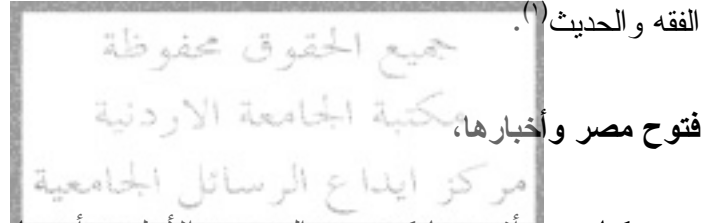 الفقه والحديث(١).
جميع الحقوق محفوظة
مكتبة الجامعة الاردنية
فتوح مصر وأخبارها،
مركز ايداع الرسائل الجامعية